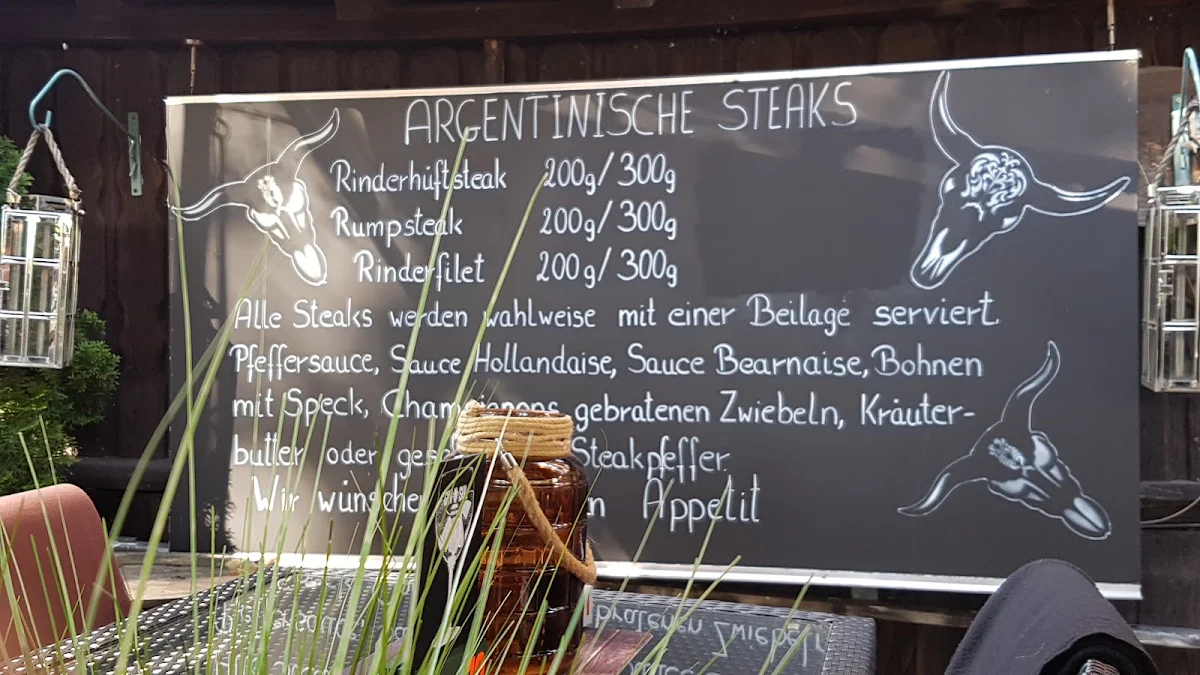 ARGENTINISCHE STEAKS
Rinderhüftsteak 200g/300g
Rumpsteak 200g/300g
Rinderfilet 200g/300g
Alle Steaks werden wahlweise mit einer Beilage serviert.
Pfeffersauce, Sauce Hollandaise, Sauce Bearnaise, Bohnen
mit Speck, Champignons, gebratenen Zwiebeln, Kräuter-
butter oder Steakpfeffer.
Wir Appetit
bratenen Zwiebel